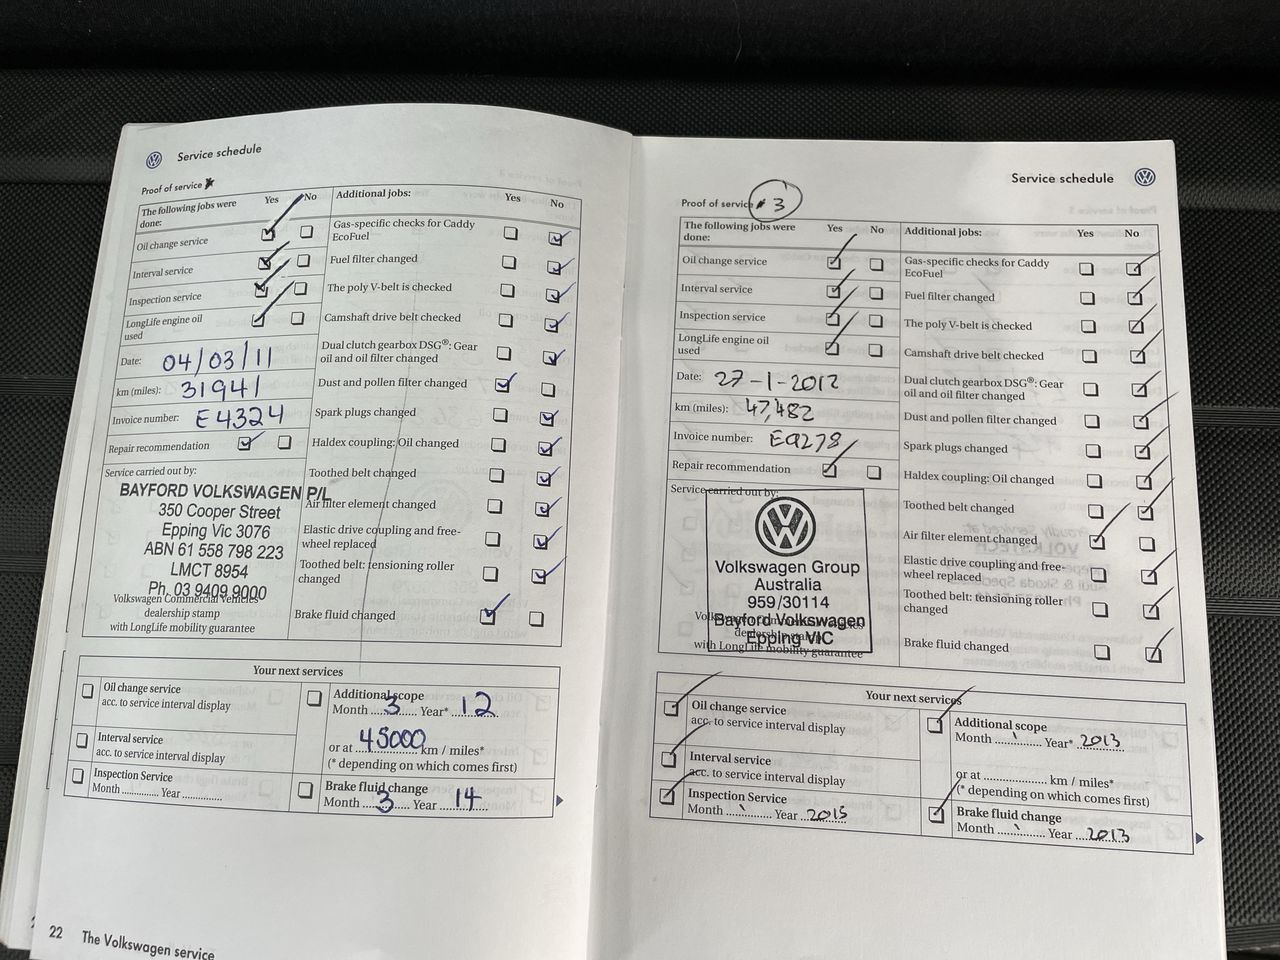 Service schedule
Proof of service
The following jobs were done:
Yes No
Oil change service
Interval service
Inspection service
LongLife engine oil used
Date: 04/03/11
km (miles): 31941
Invoice number: E4324
Repair recommendation
Service carried out by:
BAYFORD VOLKSWAGEN P/L
350 Cooper Street
Epping Vic 3076
ABN 61 558 798 223
LMCT 8954
Ph. 03 9409 9000
Volkswagen Commercial Vehicles
dealership stamp
with LongLife mobility guarantee
Additional jobs:
Yes No
Gas-specific checks for Caddy
EcoFuel
Fuel filter changed
The poly V-belt is checked
Camshaft drive belt checked
Dual clutch gearbox DSG®: Gear
oil and oil filter changed
Dust and pollen filter changed
Spark plugs changed
Haldex coupling: Oil changed
Toothed belt changed
Air filter element changed
Elastic drive coupling and free-
wheel replaced
Toothed belt: tensioning roller
changed
Brake fluid changed
Your next services
Oil change service
acc. to service interval display
Interval service
acc. to service interval display
Inspection Service
Month ............. Year ..............
Additional scope
Month ....3.... Year* ..12..
or at ...45000... km / miles*
(* depending on which comes first)
Brake fluid change
Month ....3.... Year ..14..
22 The Volkswagen service
Service schedule
Proof of service # 3
The following jobs were
done:
Yes No
Oil change service
Interval service
Inspection service
LongLife engine oil
used
Date: 27-1-2012
km (miles): 47,482
Invoice number: E9278
Repair recommendation
Service carried out by:
Volkswagen Group
Australia
959/30114
Bayford Volkswagen
Epping VIC
with LongLife mobility guarantee
Additional jobs:
Yes No
Gas-specific checks for Caddy
EcoFuel
Fuel filter changed
The poly V-belt is checked
Camshaft drive belt checked
Dual clutch gearbox DSG®: Gear
oil and oil filter changed
Dust and pollen filter changed
Spark plugs changed
Haldex coupling: Oil changed
Toothed belt changed
Air filter element changed
Elastic drive coupling and free-
wheel replaced
Toothed belt: tensioning roller
changed
Brake fluid changed
Your next services
Oil change service
acc. to service interval display
Interval service
acc. to service interval display
Inspection Service
Month ............. Year ..2015
Additional scope
Month ............. Year* 2013
or at ..................... km / miles*
(* depending on which comes first)
Brake fluid change
Month ............. Year ..2013